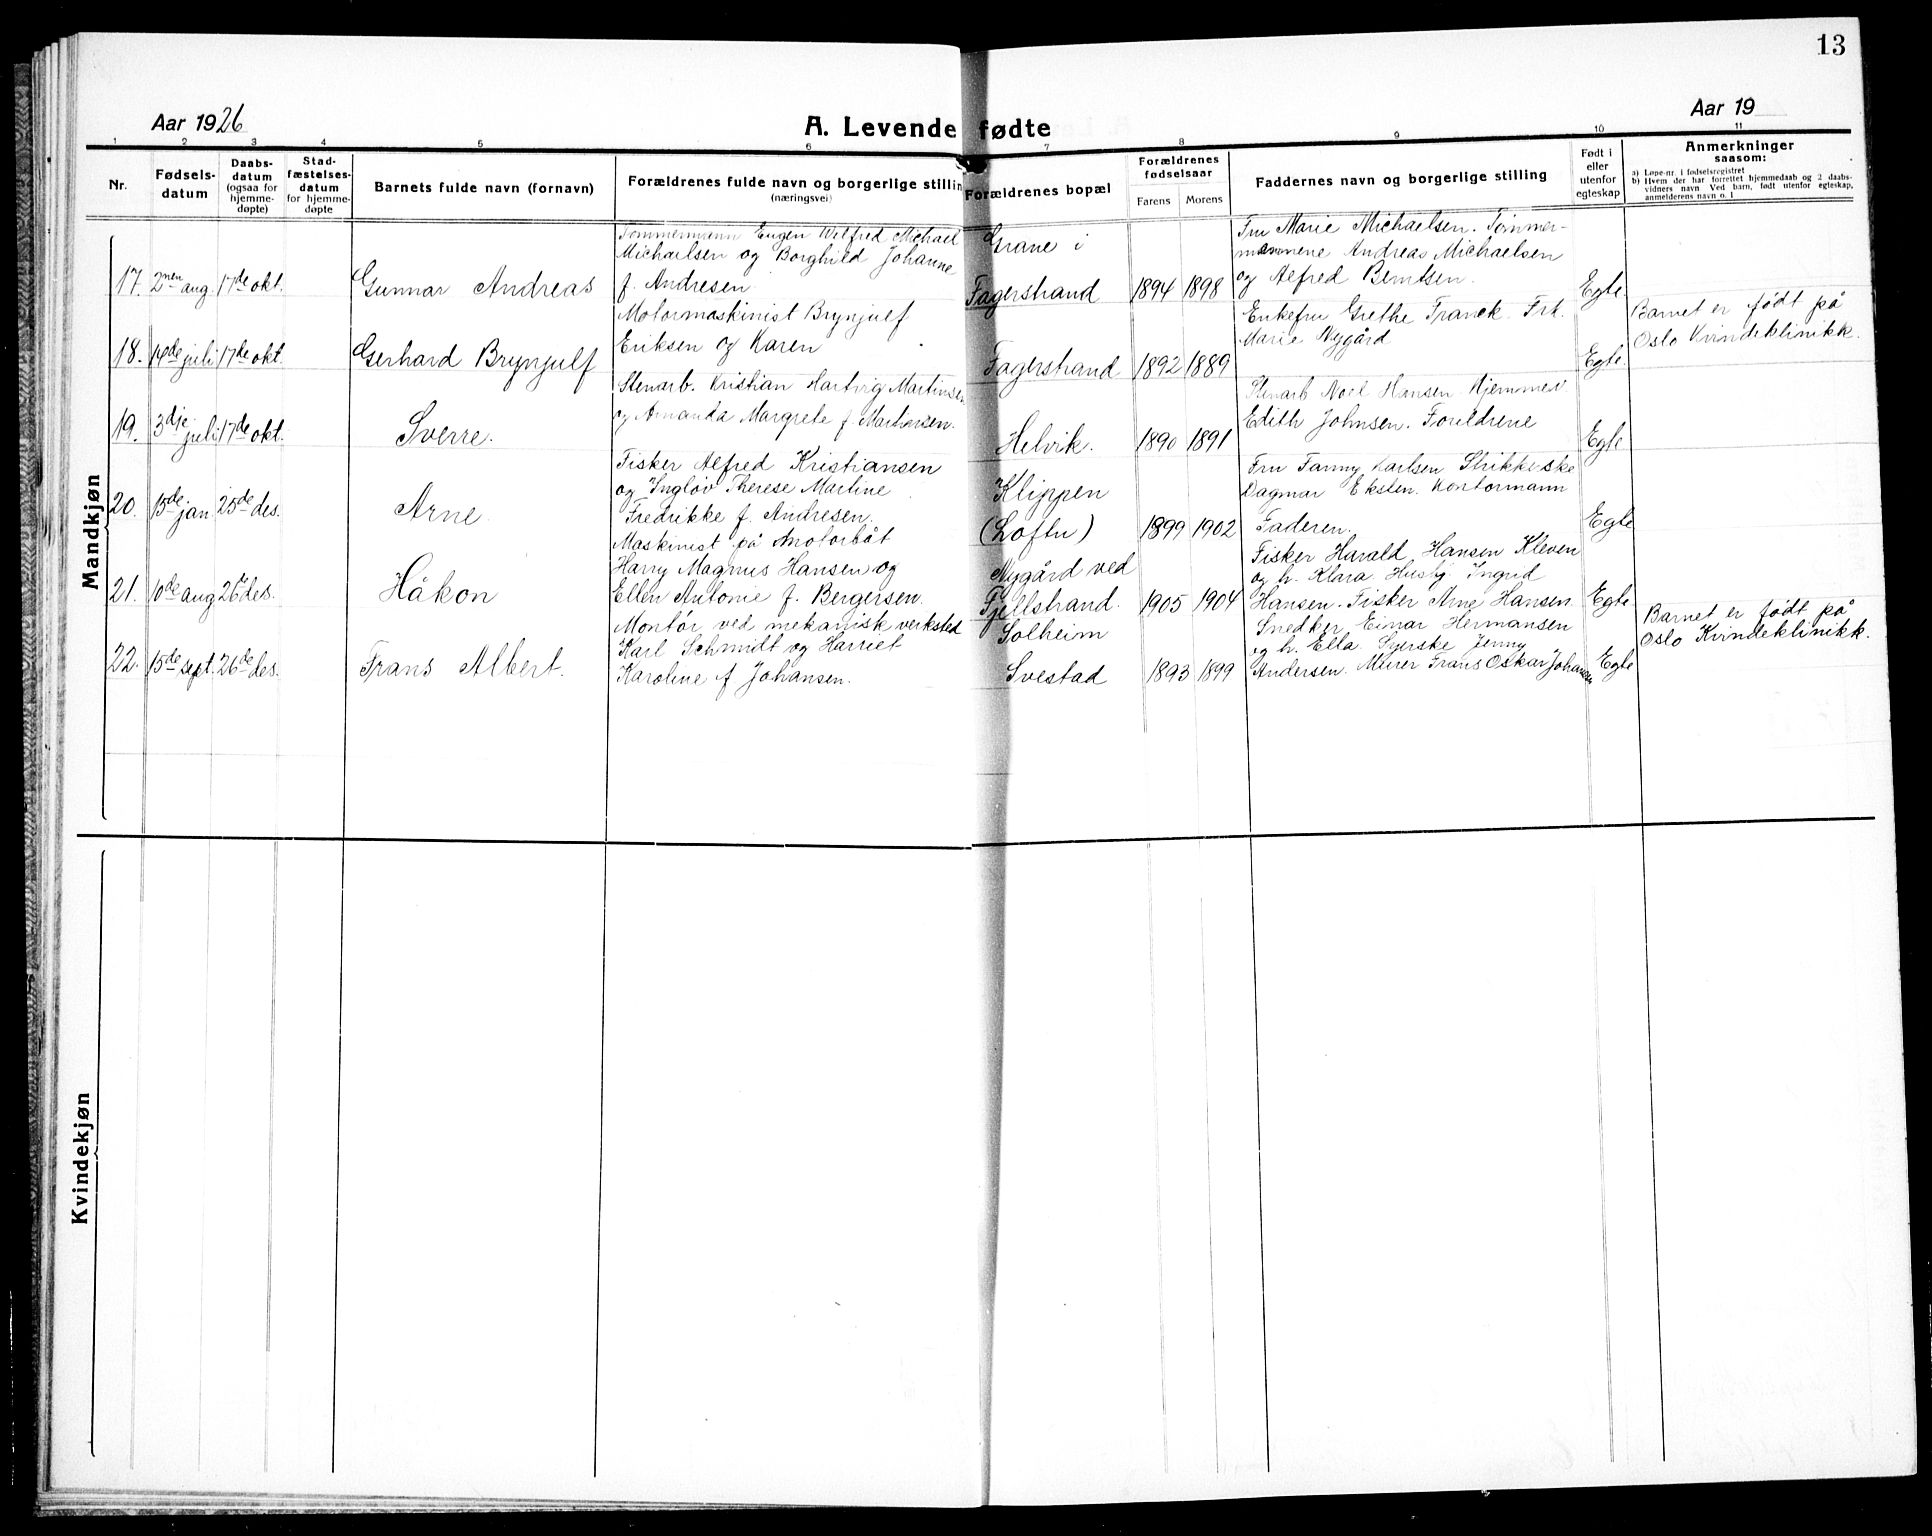 13
Aar 1926
A. Levende fødte
Aar 19
1 2 3 4 5 6 7 8 9 10 11
Nr.
Fødsels-
datum
Daabs-
datum
(ogsaa for
hjemme-
døpte)
Stad-
fæstelses-
datum
for hjemme-
døpte
Barnets fulde navn (fornavn)
Forældrenes fulde navn og borgerlige stillin
(næringsvei)
Forældrenes bopæl
Forældrenes
fødselsaar
Farens Morens
Faddernes navn og borgerlige stilling
Født i
eller
utenfor
egteskap
Anmerkninger
saasom:
a) Løpe-nr. i fødselsregistret
b) Hvem der har forrettet hjemmedaab og 2 daabs-
vidners navn Ved barn, født utenfor egteskap,
anmelderens navn o. l
Mandkjøn
17. 2nen aug. 17de okt. Gunnar Andreas
Tømmermann Eugen Wilfred Michael
Michaelsen og Borghild Johanne
f. Andresen
Grane i
Fagerstrand
1894 1898
Fru Marie Michaelsen. Tømmer-
mennene Andreas Michaelsen
og Alfred Berntsen.
Egte.
18. 14de juli 17de okt Gerhard Brynjulf
Motormaskinist Brynjulf
Eriksen og Karen
Fagerstrand
1892 1889
Enkefru Grethe Franck. Frk.
Marie Nygård
Egte.
Barnet er født på
Oslo Kvindeklinikk.
19. 3dje juli 17de okt. Sverre.
Stenarb. Kristian Hartvig Martinsen
og Amanda Margrete f. Martinsen.
Helvik.
1890 1891
Stenarb Noel Hansen Hjemmev
Edith Johnsen. Foreldrene
Egte
20. 15de jan. 25de des. Arne.
Fisker Alfred Kristiansen
og Ingløv Therese Martine
Fredrikke f. Andresen.
Klippen
(Loftu)
1899 1902
Fru Fanny Karlsen Strikkerske
Dagmar Eksten. Kontormann
Faderen.
Egte
21. 10de aug 26 des. Håkon
Maskinist på motorbåt
Harry Magnus Hansen og
Ellen Antonie f. Bergersen.
Nygård ved
Fjellstrand.
1905 1904
Fisker Harald Hansen Kleven
og h. Klara Husby Ingrid
Hansen. Fisker Arne Hansen
Egte
22. 15de sept. 26de des. Frans Albert.
Montør ved mekanisk verksted
Karl Schmidt og Harriet
Karoline f Johansen.
Solheim
Svestad
1893 1899
Snedker Einar Hermansen
og h. Ella. Syerske Jenny
Andersen. Murer Frans Oskar Johansen
Egte
Barnet er født på
Oslo Kvindeklinikk.
Kvindekjøn